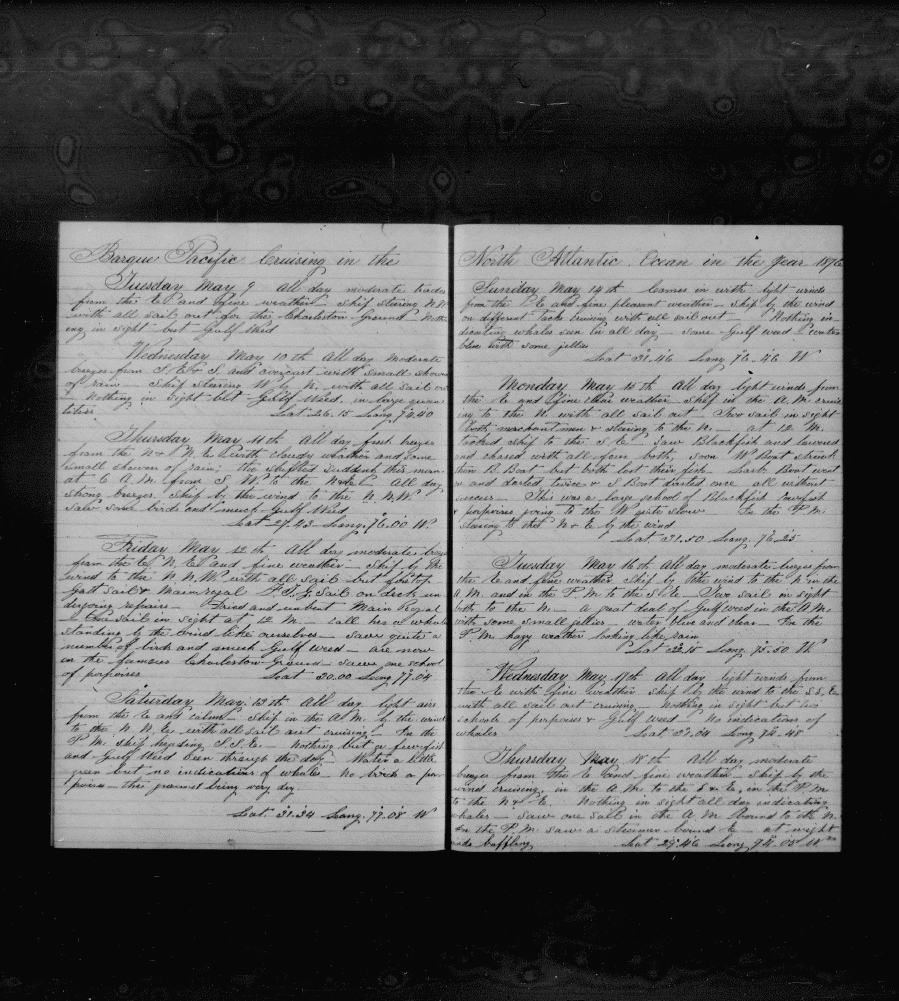 Barque Pacific Cruising in the
Tuesday May 9 all day moderate trades
from the E and fine weather ship steering N.W
with all sail out for this Charleston Ground Noth
ing in sight but Gulf Weed
Wednesday May 10th All day moderate
breezes from S. E & S. and overcast with small showers
of rain Ship Steering W by N. with all sail out
Nothing in sight but Gulf Weed in large quan
tities Lat 26.15 Long 74.40
Thursday May 11th All day fresh breezes
from the N & N. E with cloudy weather and some
small showers of rain; the shifted sudden this morn
at 6 A.M. from S W to the N & E All day
strong breezes. Ship by the wind to the N. N.W
Saw some birds and much Gulf Weed
Lat 27.43 Long. 76.00 W
Friday May 12th All day moderate breezes
from the E N. E and fine weather Ship by the
wind to the N. N.W with all sail but foretop
Gall sail & Mainroyal F. T. G Sail on deck un
dergoing repairs Dried and unbent Main Royal
One sail in sight at 12 M. call her a whaler
standing by the wind like ourselves saw quite a
number of birds and much Gulf weed are now
on the famous Charleston Ground saw one school
of porpoises Lat 30.00 Long 77.04
Saturday May 13th All day light airs
from the E and calm Ship in the A M. by the wind
to the N. N. E, with all sail out cruising In the
P M. ship heading S. S. E. Nothing but a few fish
and Gulf Weed seen through the day Water a little
green but no indications of whales No birds or por
poises this ground being very dry
Lat. 31.34 Long. 77.08 W
North Atlantic Ocean in the year 1876
Sunday May 14th Comes in with light winds
from the E and fine pleasant weather ship by the wind
on different tacks cruising with all sail out Nothing in
dicating whales seen in all day some Gulf weed & water
blue with some jellies
Lat 31.46 Long 76.46 W
Monday May 15th All day light winds from
the E and fine clear weather ship in the A.M. cruis
ing to the N. with all sail out Two sail in sight
both merchantmen & steering to the N. at 12 M.
tacked ship to the S. E saw Blackfish and lowered
and chased with all four boats, soon W Boat struck
then B. Boat but both lost their fish Larb. Boat went
on and darted twice & S Boat darted once all without
success This was a large school of Blackfish Cowfish
& porpoises going to the W quite slow In the P M.
steering to the N & E by the wind
Lat 31.50 Long. 76.25
Tuesday May 16th All day moderate breezes from
the E and fine weather Ship by the wind to the N in the
A M. and in the P M to the S & E Two sail in sight
both to the N. a great deal of Gulf weed in the A.M.
with some small jellies water blue and clear In the
P M. hazy weather looking like rain
Lat 32.15 Long. 75.50 W
Wednesday May 17th All day light winds from
the E with fine weather ship by the wind to the S.S.E.
with all sail out cruising Nothing in sight but two
schools of porpoises & Gulf weed No indications of
whales Lat 32.04 Long 74.48
Thursday May 18th All day moderate
breezes from the E and fine weather Ship by the
wind cruising in the A M. to the S & E, in the P.M
to the N & E. Nothing in sight all day indicating
whales saw one sail in the A.M bound to the N.
In the P M. saw a steamer bound E at night
winds baffling Lat 29.46 Long 74.05 W